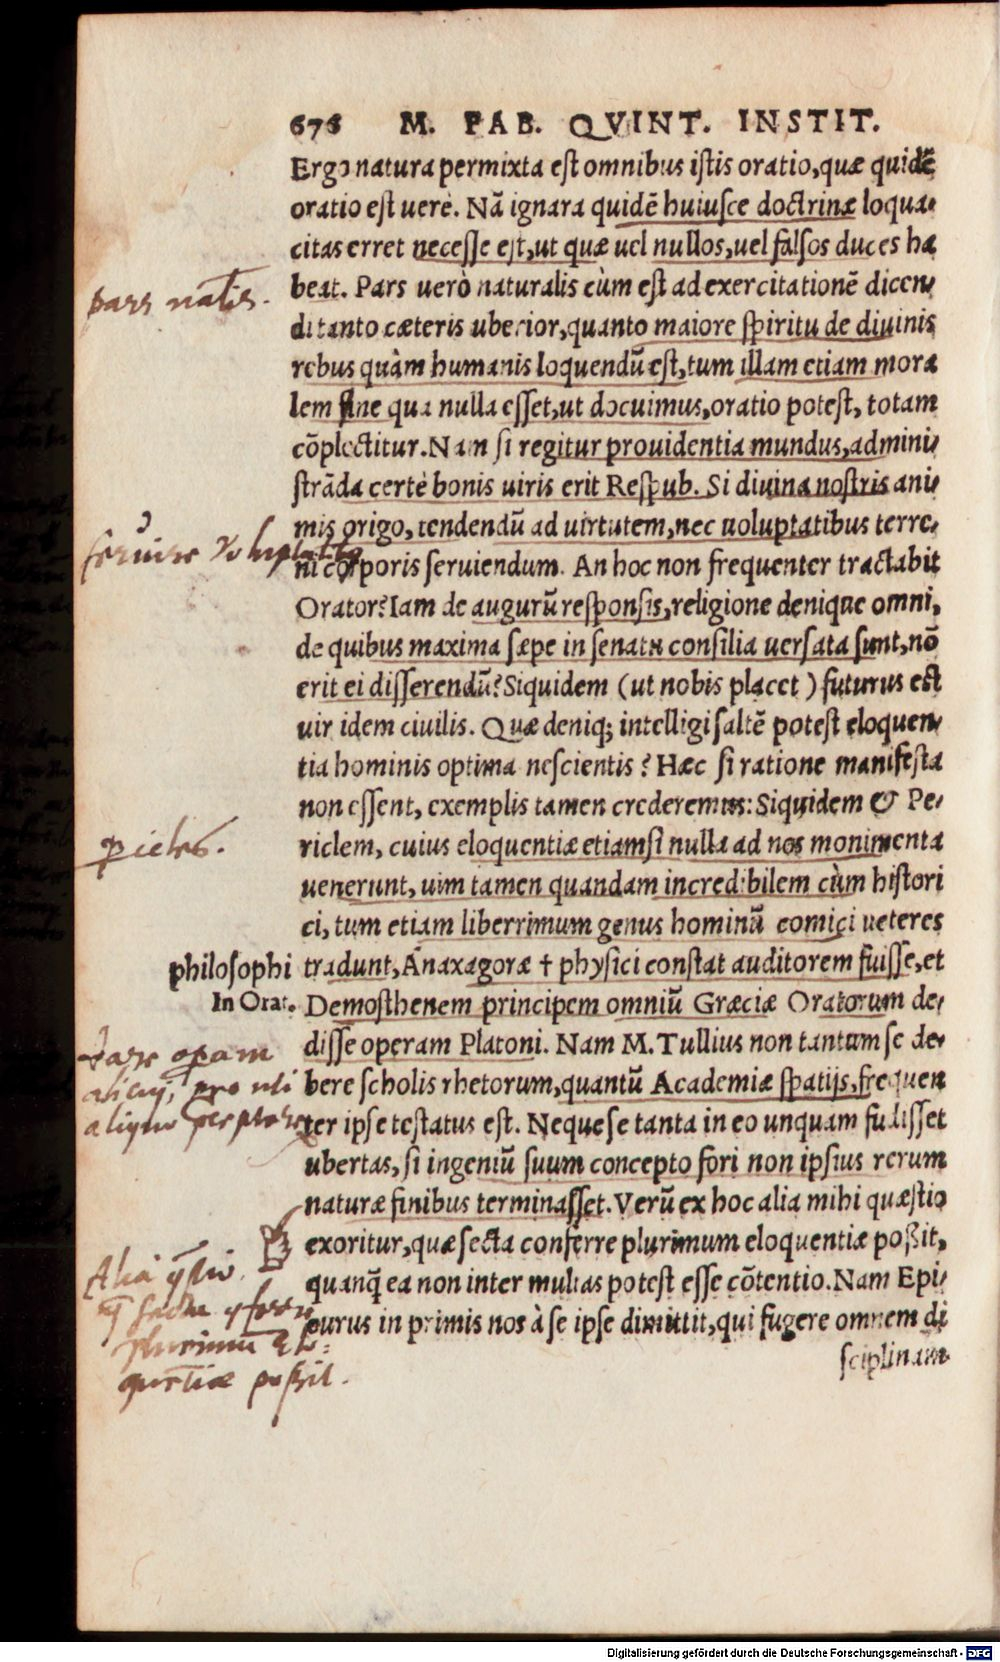 676 M. FAB. QVINT. INSTIT.
Ergo natura permixta est omnibus istis oratio, quæ quidē
oratio est uerè. Nā ignara quidē huiusce doctrinæ loqua-
citas erret necesse est, ut quæ uel nullos, uel falsos duces ha
beat. Pars uerò naturalis cùm est ad exercitationē dicen-
di tanto cæteris uberior, quanto maiore spiritu de diuinis
rebus quàm humanis loquendū est, tum illam etiam mora
lem sine qua nulla esset, ut docuimus, oratio potest, totam
cōplectitur. Nam si regitur prouidentia mundus, admini-
strāda certè bonis uiris erit Respub. Si diuina nostris ani-
mis origo, tendendū ad uirtutem, nec uoluptatibus terre-
ni corporis seruiendum. An hoc non frequenter tractabit
Orator? Iam de augurū responsis, religione denique omni,
de quibus maxima sæpe in senatu consilia uersata sunt, nō
erit ei disserendū? Siquidem (ut nobis placet) futurus est
uir idem ciuilis. Quæ deniq; intelligi saltē potest eloquen-
tia hominis optima nescientis? Hæc si ratione manifesta
non essent, exemplis tamen crederemus: Siquidem & Pe-
riclem, cuius eloquentiæ etiamsi nulla ad nos monimenta
uenerunt, uim tamen quandam incredibilem cùm histori
ci, tum etiam liberrimum genus hominū comici ueteres
tradunt, Anaxagoræ † physici constat auditorem fuisse, et
Demosthenem principem omniū Græciæ Oratorum de-
disse operam Platoni. Nam M. Tullius non tantum se de-
bere scholis rhetorum, quantū Academiæ spatijs, frequen
ter ipse testatus est. Neque se tanta in eo unquam fudisset
ubertas, si ingeniū suum concepto fori non ipsius rerum
naturæ finibus terminasset. Verū ex hoc alia mihi quæstio
exoritur, quæ secta conferre plurimum eloquentiæ poßit,
quanq̄ ea non inter multas potest esse cōtentio. Nam Epi-
curus in primis nos à se ipse dimittit, qui fugere omnem di
sciplinam
philosophi
In Orat.
pars
seruire
Dare operam
alicui, pro
aliquo
Alia
plurimum
poßit.
Digitalisierung gefördert durch die Deutsche Forschungsgemeinschaft - DFG